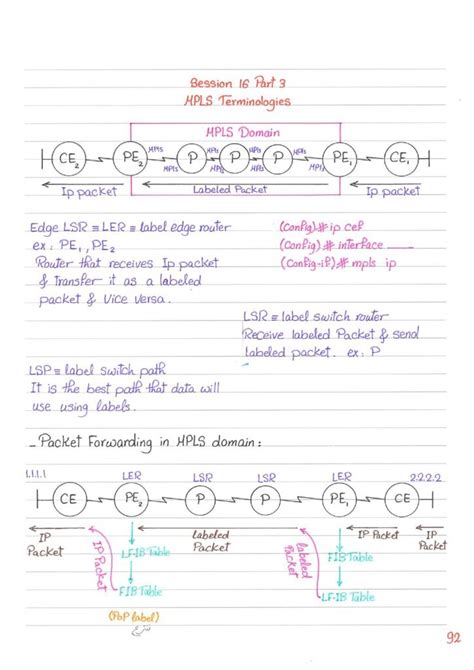 Session 16 Part 3
MPLS Terminologies
MPLS Domain
CE2 PE2 P P P PE1 CE1
MPLS MPLS MPLS MPLS
MPLS MPLS MPLS MPLS
Ip packet Labeled Packet Ip packet
Edge LSR ≡ LER ≡ label edge router
ex: PE1, PE2
Router that receives Ip packet
& Transfer it as a labeled
packet & Vice Versa.
(Config)# ip cef
(Config)# interface
(Config-if)# mpls ip
LSR ≡ label switch router
Receive labeled Packet & send
labeled packet. ex: P
LSP ≡ label switch path
It is the best path that data will
use using labels.
- Packet Forwarding in MPLS domain:
1.1.1.1 LER LSR LSR LER 2.2.2.2
CE PE2 P P PE1 CE
IP Packet
IP Packet
labeled Packet
labeled Packet
IP Packet
IP Packet
LFIB Table
FIB Table
(PoP label)
FIB Table
LFIB Table
92